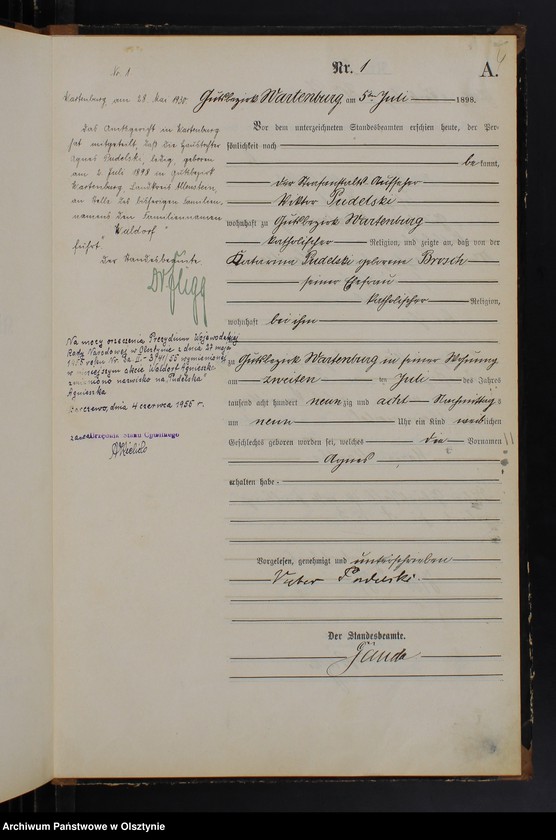 Nr. 1
A.
Gutsbezirk Wartenburg, am 5ten Juli 1898.
Vor dem unterzeichneten Standesbeamten erschien heute, der Per-
sönlichkeit nach
bekannt,
der Strafanstalts-Aufseher
Viktor Pudelski
wohnhaft zu Gutsbezirk Wartenburg
katholischer Religion, und zeigte an, daß von der
Katharina Pudelski geborene Brosch
seiner Ehefrau
katholischer Religion,
wohnhaft bei ihm
zu Gutsbezirk Wartenburg in seiner Wohnung
am zweiten ten Juli des Jahres
tausend acht hundert neunzig und acht Nachmittags
um neun Uhr ein Kind weiblichen
Geschlechts geboren worden sei, welches die Vornamen
Agnes
erhalten habe.
Vorgelesen, genehmigt und unterschrieben
Victor Pudelski.
Der Standesbeamte.
Nr. 1
Wartenburg am 28. Mai 1938
Das Amtsgericht in Wartenburg
hat mitgeteilt, daß die Haustochter
Agnes Pudelski, ledig, geboren
am 2. Juli 1898 in Gutsbezirk
Wartenburg, Landkreis Allenstein,
an Stelle des bisherigen Familien-
namens den Familiennamen
"Waldorf"
führt.
Der Standesbeamte
Na mocy orzeczenia Prezydium Wojewódzkiej
Rady Narodowej w Olsztynie z dnia 27 maja
1955 roku Nr. wymienionej
w niniejszym akcie Waldorf Agnieszki
zmieniono nazwisko na "Pudelska"
Agnieszka
Barczewo, dnia 4 czerwca 1955 r.
Urzędnik Stanu Cywilnego
Archiwum Państwowe w Olsztynie